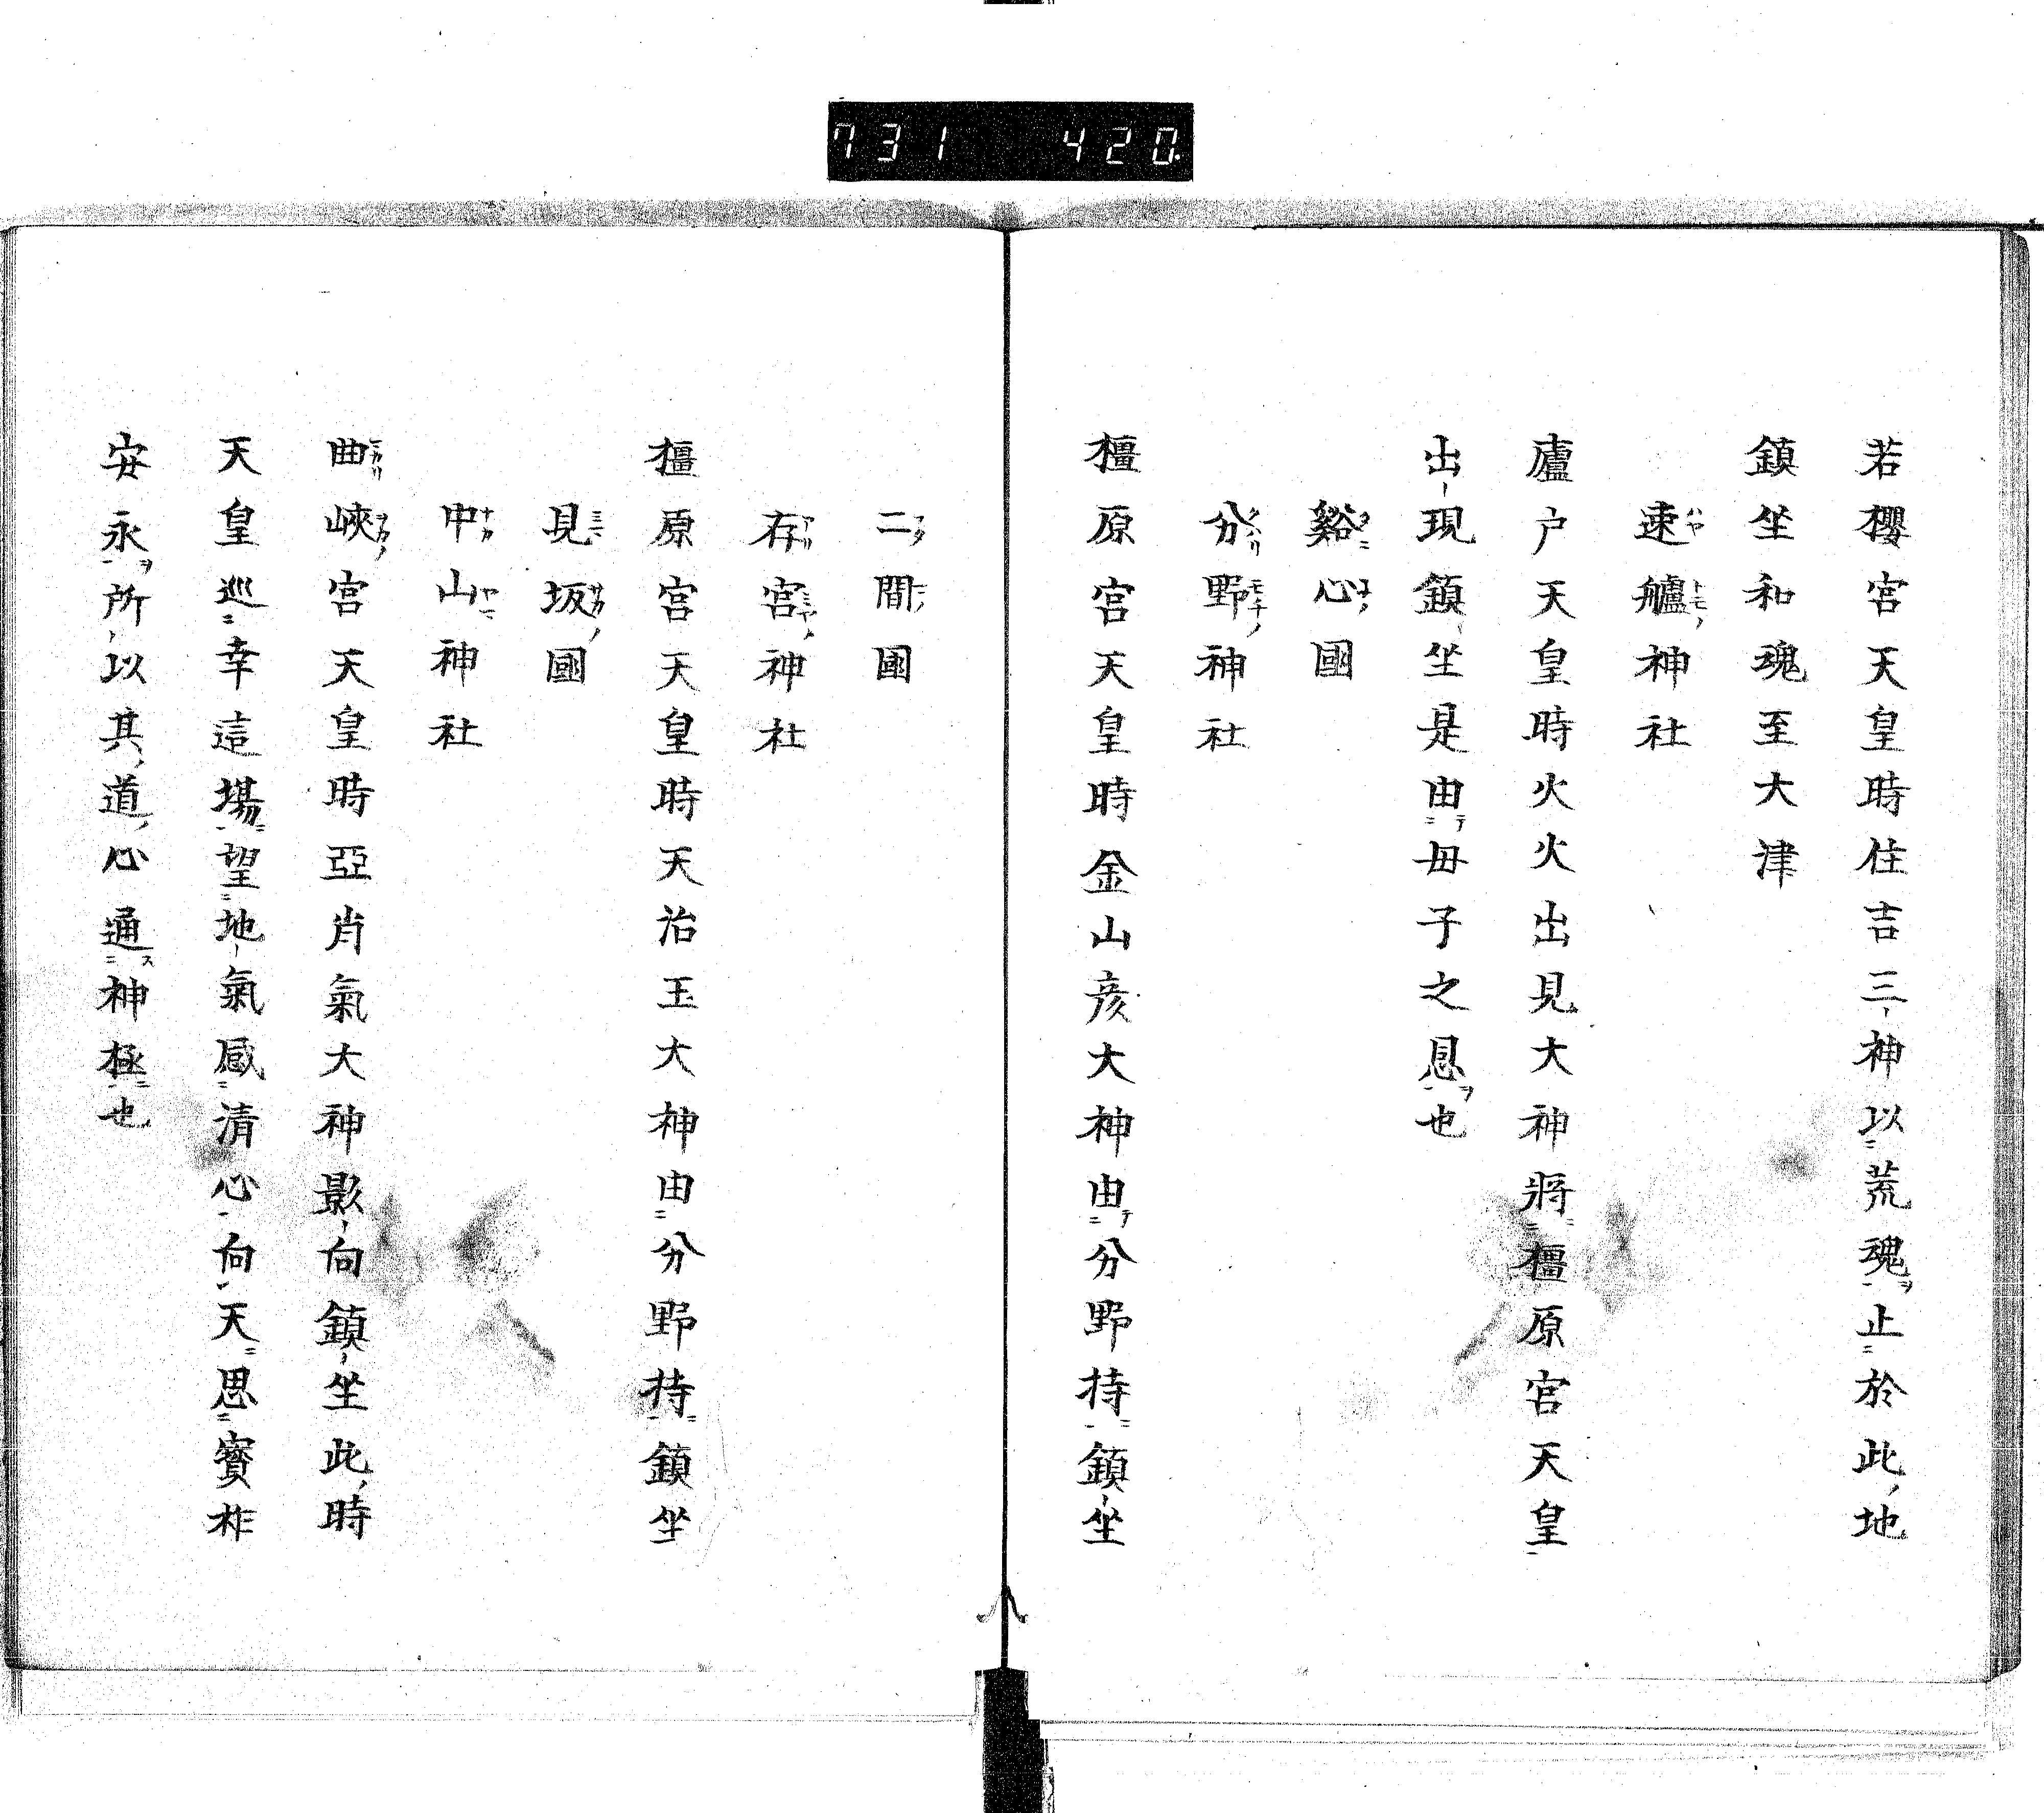 731 420.
若櫻宮天皇時住吉三神以荒魂止於此地
鎮坐和魂至大津
速艫神社
廬戸天皇時火火出見大神將橿原宮天皇
出現鎮坐是由母子之恩也
谿心國
分野神社
橿原宮天皇時金山彦大神由分野持鎮坐
二間國
存宮神社
橿原宮天皇時天治玉大神由分野持鎮坐
見坂國
中山神社
曲峽宮天皇時亞肖氣大神影向鎮坐此時
天皇巡幸這場望地氣感清心向天思寳祚
安永所以其道心通神極也
八